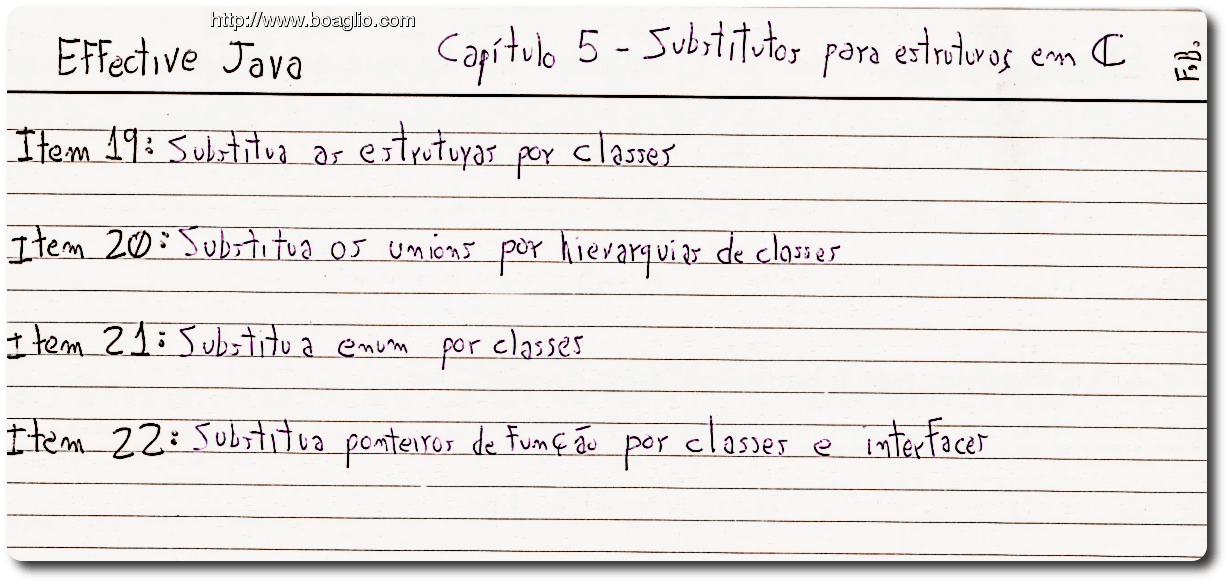 http://www.boaglio.com
Effective Java Capítulo 5 - Substitutos para estruturas em C
Item 19: Substitua as estruturas por classes
Item 20: Substitua os unions por hierarquias de classes
Item 21: Substitua enum por classes
Item 22: Substitua ponteiros de função por classes e interfaces